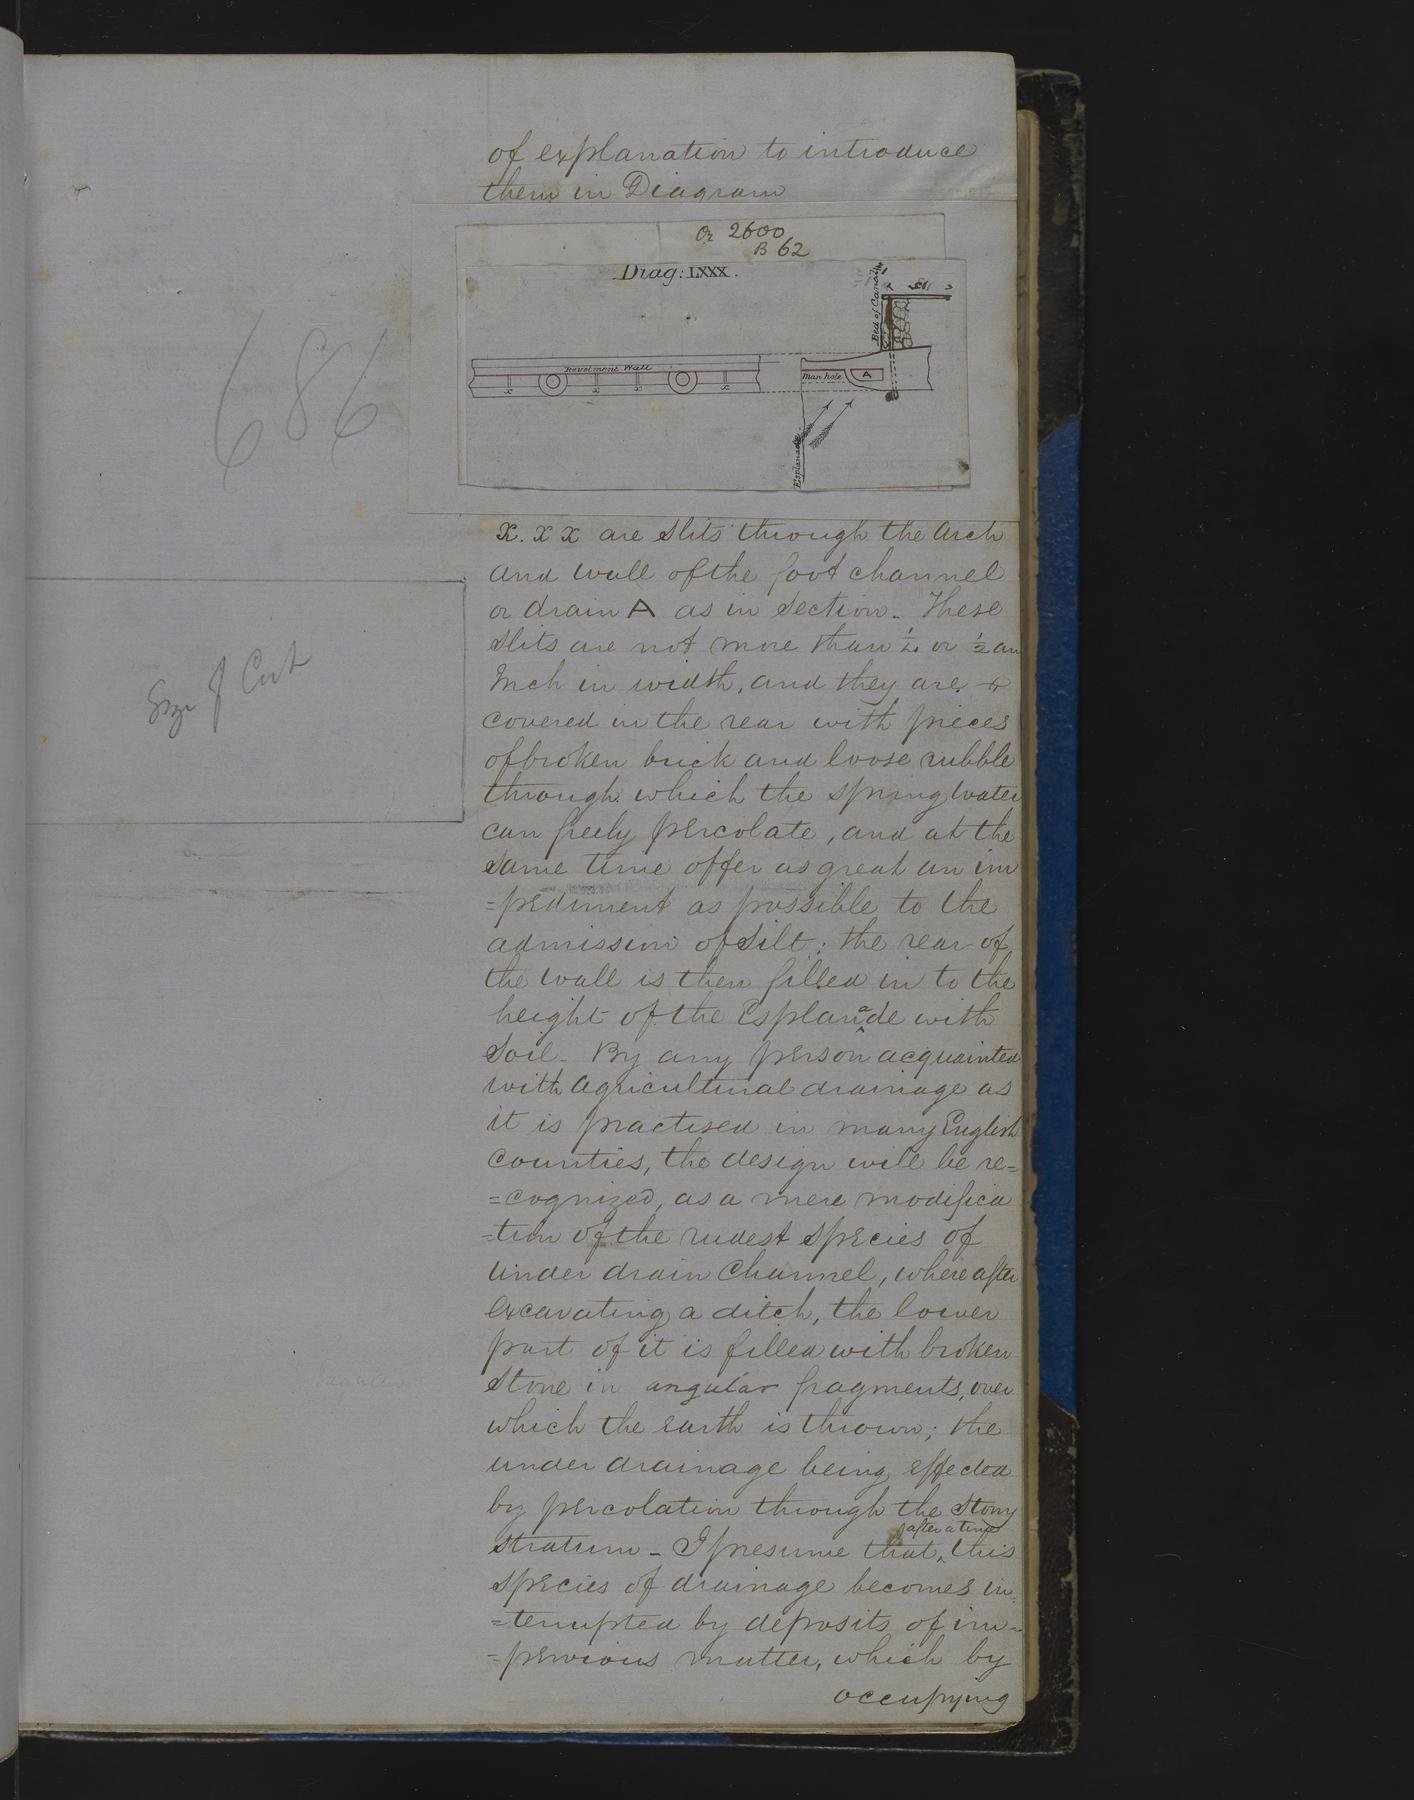 of explanation to introduce
them in Diagram
Or 2600
B 62
Drag: LXXX.
Bed of Canal
Revetment Wall
x x x x
Man hole
A
Esplanade
686
x. x x are slits through the Arch
and wall of the foot channel
or drain A as in section. These
slits are not more than ¼ or ½ an
Inch in width, and they are
covered in the rear with pieces
of broken brick and loose rubble
through which the spring water
can freely percolate, and at the
same time offer as great an im
=pediment as possible to the
admission of silt; the rear of
the wall is then filled in to the
height of the Esplanade with
Soil. By any person acquainted
with agricultural drainage as
it is practised in many English
Counties, the design will be re=
=cognized, as a mere modifica
=tion of the rudest species of
under drain Channel, where after
excavating a ditch, the lower
part of it is filled with broken
Stone in angular fragments, over
which the earth is thrown; the
under drainage being effected
by percolation through the stony
after a time
stratum - I presume that, this
species of drainage becomes in=
=terrupted by deposits of im=
=pervious matter, which by
occupying
Size of Cut